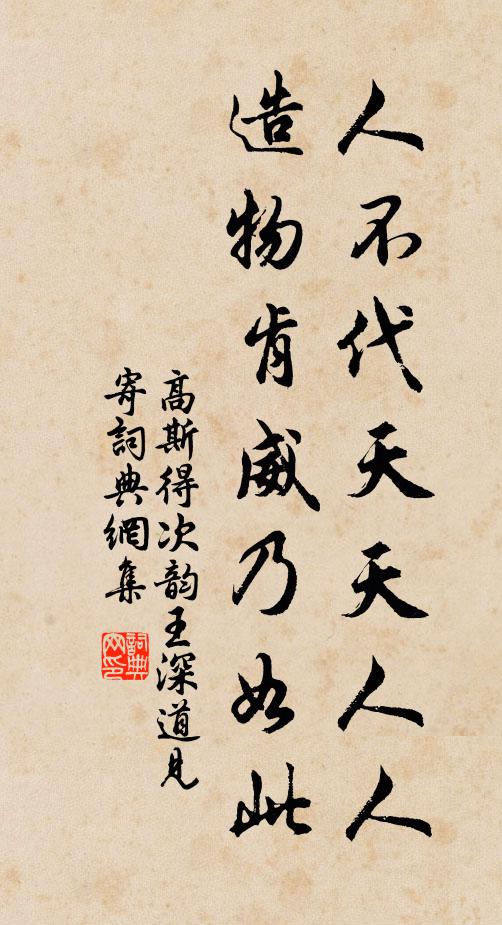 人不代天天人人
造物肯威乃如此
高斯得次韵王深道見
寄詞典網集
詞典網印